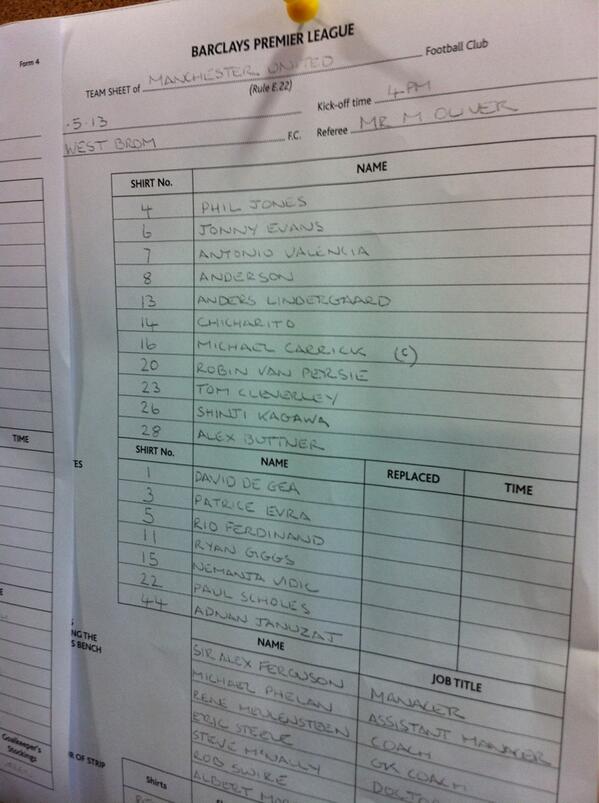 Form 4
BARCLAYS PREMIER LEAGUE
TEAM SHEET of MANCHESTER UNITED Football Club
(Rule E.22)
.5.13 Kick-off time 4PM
WEST BROM F.C. Referee MR M OLIVER
SHIRT No. NAME
4 PHIL JONES
6 JONNY EVANS
7 ANTONIO VALENCIA
8 ANDERSON
13 ANDERS LINDERGAARD
14 CHICHARITO
16 MICHAEL CARRICK (C)
20 ROBIN VAN PERSIE
23 TOM CLEVERLEY
26 SHINJI KAGAWA
28 ALEX BUTTNER
SHIRT No. NAME REPLACED TIME
1 DAVID DE GEA
3 PATRICE EVRA
5 RIO FERDINAND
11 RYAN GIGGS
15 NEMANJA VIDIC
22 PAUL SCHOLES
44 ADNAN JANUZAJ
NAME JOB TITLE
SIR ALEX FERGUSON MANAGER
MICHAEL PHELAN ASSISTANT MANAGER
RENE MEULENSTEEN COACH
ERIC STEELE GK COACH
STEVE McNALLY DOCTO
ROB SWIRE
ALBERT
TIME
ES
NG THE
S BENCH
R OF STRIP
Goalkeeper's
Stockings
Shirts